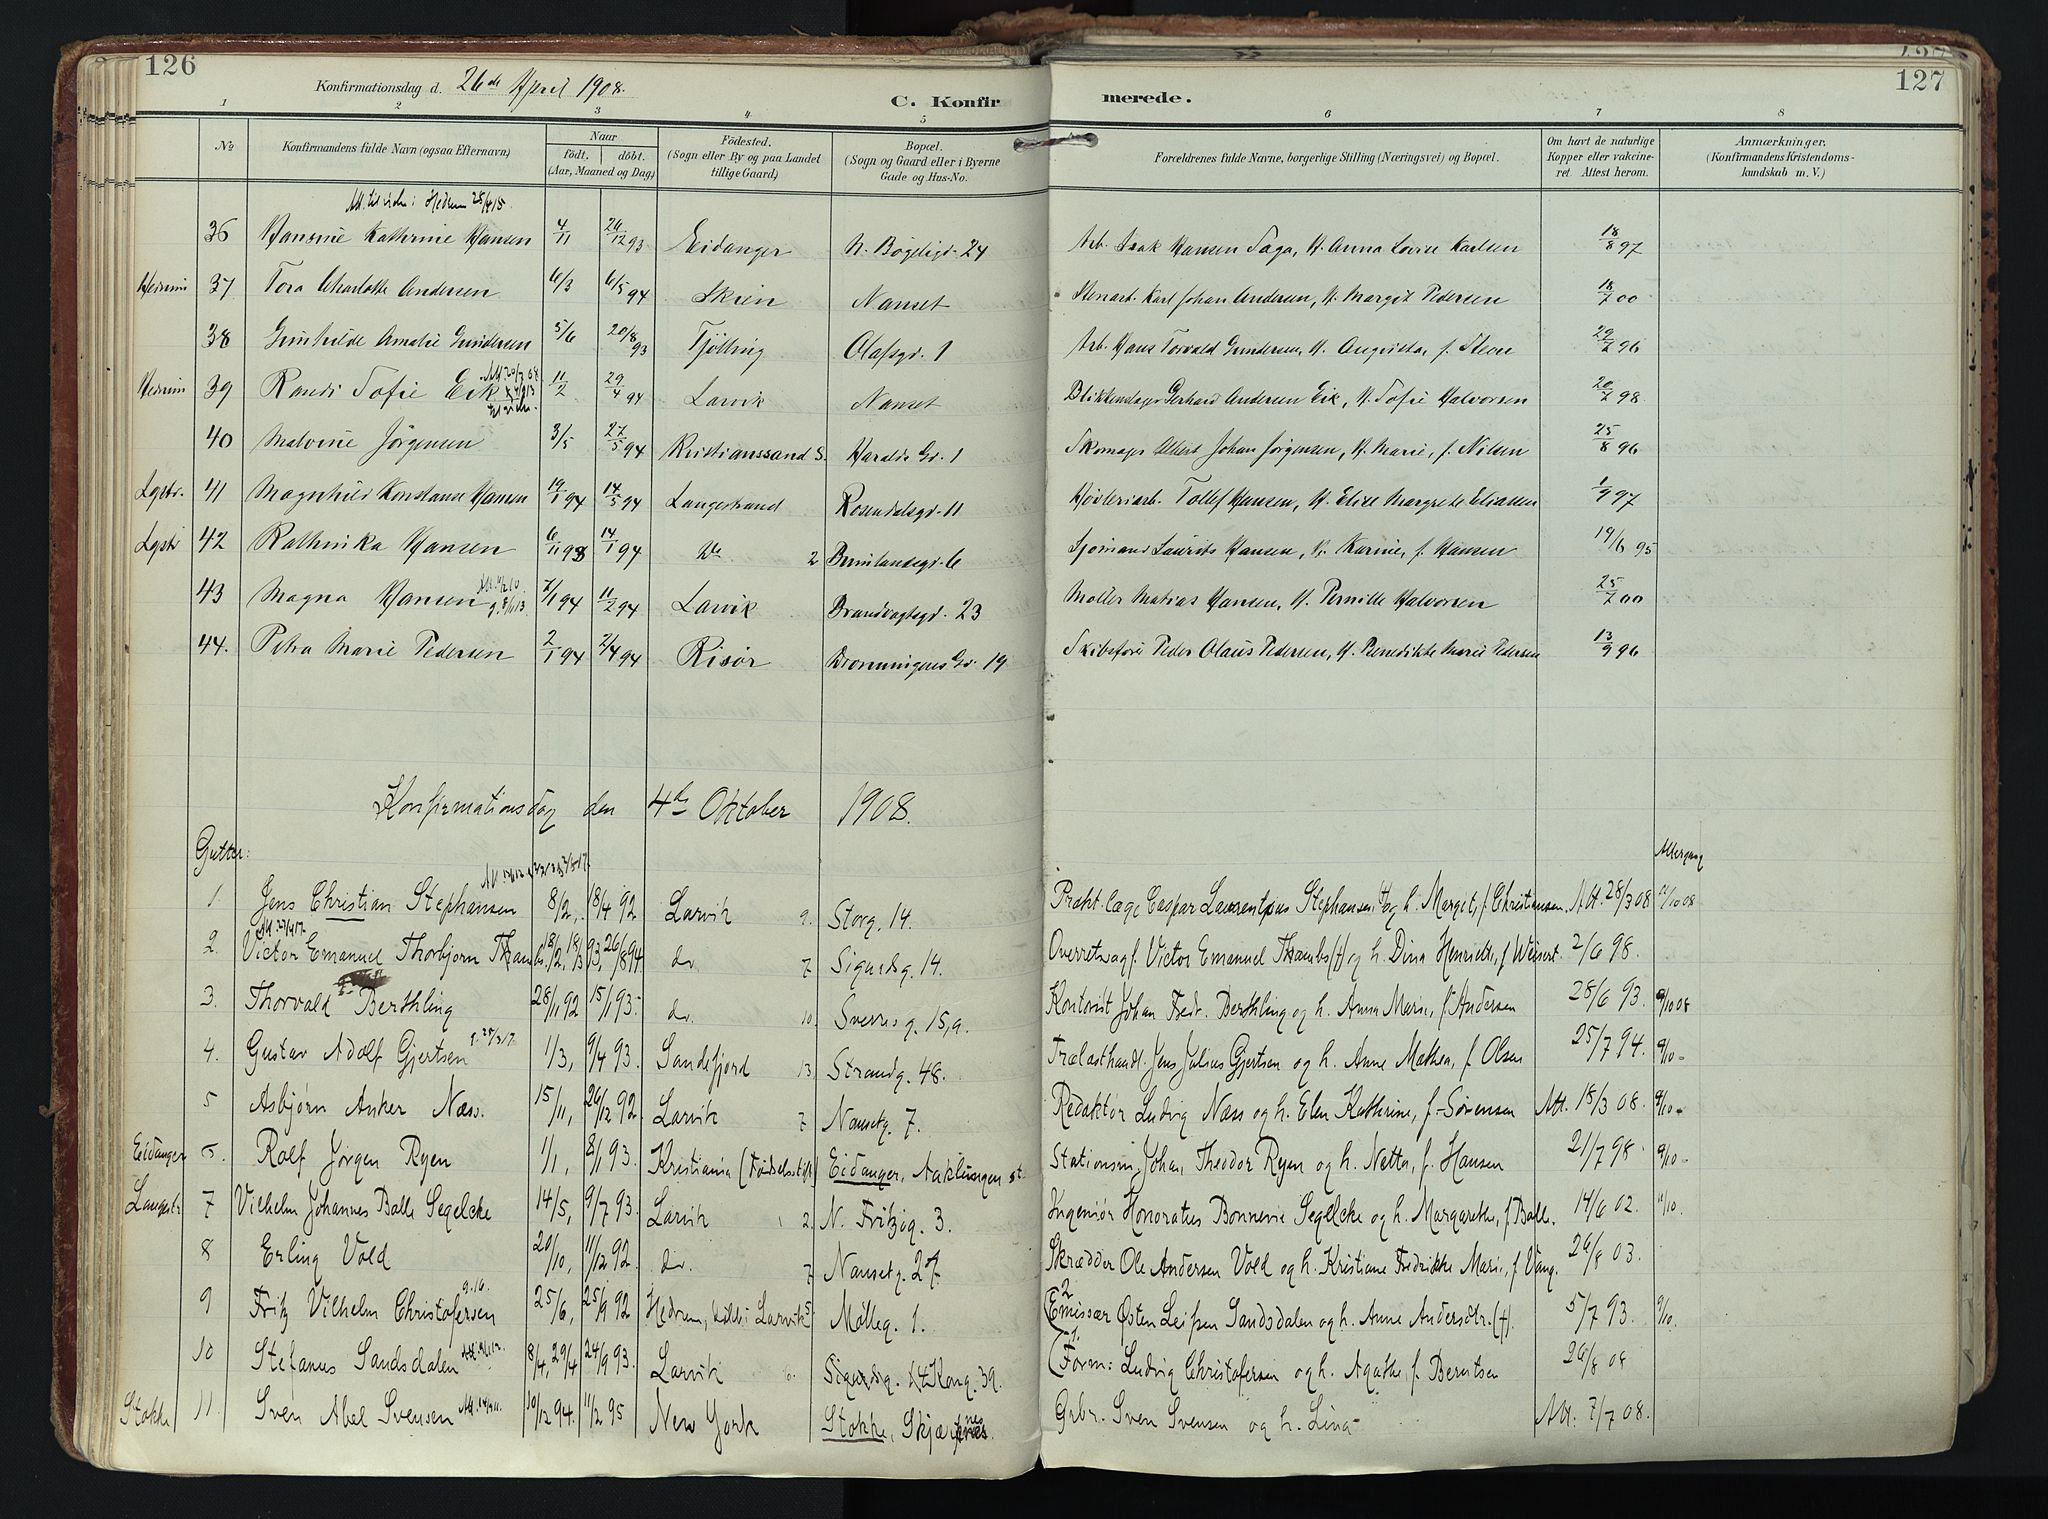 126
Konfirmationsdag d. 26de April 1908.
C. Konfir
merede.
127
1 2 3 4 5 6 7 8
No
Konfirmandens fulde Navn (ogsaa Efternavn)
Naar
födt. döbt.
(Aar, Maaned og Dag)
Födested.
(Sogn eller By og paa Landet
tillige Gaard)
Bopæl.
(Sogn og Gaard eller i Byerne
Gade og Hus-No.
Forældrenes fulde Navne, borgerlige Stilling (Næringsvei) og Bopæl.
Om havt de naturlige
Kopper eller vakcine-
ret. Attest herom.
Anmærkninger.
(Konfirmandens Kristendoms-
kundskab m. V.)
36 Hansine Kathrine Hansen 4/11 26/12 93 Eidanger N. Bögeligd. 24 Arb. Isak Hansen Saga, H. Anna Lovise Karlsen 18/8 97
Hedrum 37 Tora Charlotte Andersen 6/3 6/5 94 Skien Nanset Stenarb. Karl Johan Andersen, H. Margit Pedersen 18/7 00
38 Gunhilde Amalie Gundersen 5/6 20/8 93 Tjölling Olafsgd. 1 Arb. Hans Torvald Gundersen, H. Augusta, f. Stene 29/7 96
Hedrum 39 Randi Sofie Eik 11/2 29/4 94 Larvik Nanset Blikkenslager Gerhard Andersen Eik, H. Sofie Halvorsen 20/7 98
40 Malvine Jörgensen 3/5 27/5 94 Kristianssand S. Haralds Gd. 1 Skomager Albert Johan Jörgensen, H. Marie, f. Nilsen 25/8 96
Lgstr. 41 Magnhild Konstanse Hansen 19/1 94 14/5 94 Langestrand Rosendalsgd. 11 Høvleriarb. Tollef Hansen, H. Elise Margrete Eliassen 1/9 97
Lgstr 42 Rathinka Hansen 6/11 93 14/1 94 do 2 Brumlandsgd. 6 Sjömand Laurits Hansen, H. Karine, f. Hansen 19/6 95
43 Magna Hansen 7/1 94 11/2 94 Larvik Brandvagtsgd. 23 Møller Matias Hansen, H. Pernille Halvorsen 25/7 00
44. Petra Marie Pedersen 2/1 94 2/4 94 Risör Dronningens Gd. 19 Skibsfører Peder Olaus Pedersen, H. Benedikte Marie Pedersen 13/9 96
Konfirmationsdag den 4de Oktober 1908.
Gutter:
1 Jens Christian Stephansen 8/2, 18/4 92 Larvik 9. Storg. 14. Prakt. læge Caspar Laurentius Stephansen og h. Margit, f. Christensen. Att. 28/3 08 11/10 08
2. Victor Emanuel Thorbjørn Thambs. 18/2, 18/3 93, 26/8 94 do. 7 Sigurdsg. 14. Overretssagf. Victor Emanuel Thambs (†) og h. Dina Henriette, f. Weisert. 2/6 98.
3. Thorvald Berthling 28/11 92 15/1 93. do. 10. Sverresg. 15,a. Kontorist Johan Fredr. Berthling og h. Anna Marie, f. Andersen 28/6 93. 9/10 08
4. Gustav Adolf Gjertsen g. 28/3 17. 1/3, 9/4 93. Sandefjord 13. Strandg. 48. Trælasthandl. Jens Julius Gjertsen og h. Anne Mathea, f. Olsen 25/7 94. 9/10 -
5 Asbjørn Anker Næss. 15/11, 26/12 92. Larvik 7 Nansetg. 7. Redaktör Ludvig Næss og h. Elen Kathrine, f. Sørensen Att. 18/3 08. 9/10 -
Eidanger 6. Rolf Jörgen Ryen 1/1, 8/1 93. Kristiania (Fødselsstift.) Eidanger, Aaklungen st. Stationsm. Johan Theodor Ryen og h. Netta, f. Hansen 21/7 98. 9/10 -
Langestr. 7 Vilhelm Johannes Balle Segelcke 14/5, 9/7 93. Larvik 2. N. Fritzøg. 3. Ingeniør Honoratus Bonnevie Segelcke og h. Margarethe, f. Balle. 14/6 02. 11/10.
8 Erling Vold 20/10, 11/12 92. do. 7 Nansetg. 27. Skrædder Ole Andersen Vold og h. Kristiane Fredrikke Marie, f. Vang. 26/8 03.
9 Fritz Vilhelm Christofersen 25/6, 25/9 92 Hedrum, Larvik 5. Mölleg. 1. 2 (Emissær Østen Leifsen Sandsdalen og h. Anne Andersdtr. (†). 5/7 93. 9/10.
10 Stefanus Sandsdalen 8/4, 29/4 24/9 93. Larvik 6. Kong. 39. 1. (Form: Ludvig Christofersen og h. Agathe, f. Berntsen 26/8 08
Stokke 11. Sven Abel Svensen 10/12 94. 11/2 95 New York Stokke, Skjærsnes. Grbr. Sven Svensen og h. Lina - Att. 7/7 08.